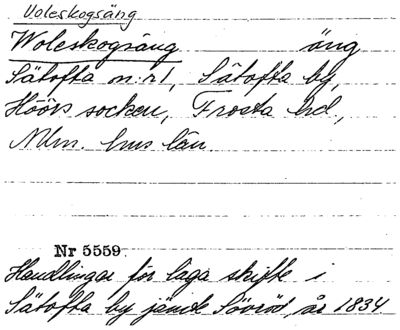 Voleskogsäng
Woleskogsäng äng
Sätofta n:r 1, Sätofta by,
Höörs socken, Frosta hd,
Mlm. hus län.
Nr 5559.
Handlingar för laga skifte i
Sätofta by jämte Sövröd, år 1834